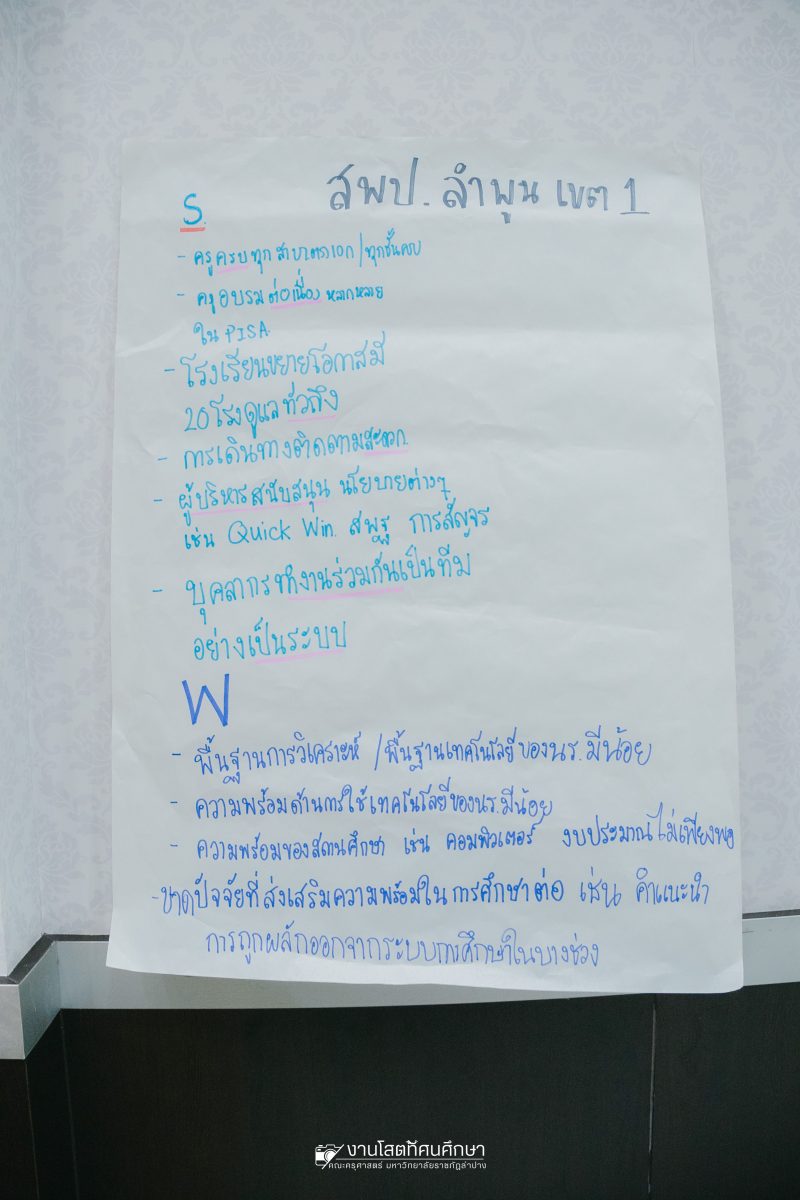 สพป. ลำพูน เขต 1
S.
- ครูครบทุกสาขาวิชาเอก/ทุกชั้นครบ
- ครูอบรมต่อเนื่อง หลากหลาย
ใน PISA
- โรงเรียนขยายโอกาสมี
20 โรงดูแลทั่วถึง
- การเดินทางติดตามสะดวก.
- ผู้บริหารสนับสนุน นโยบายต่างๆ
เช่น Quick Win. สพฐ การสัญจร
- บุคลากรทำงานร่วมกันเป็นทีม
อย่างเป็นระบบ
W
- พื้นฐานการวิเคราะห์ /พื้นฐานเทคโนโลยีของนร.มีน้อย
- ความพร้อมด้านการใช้เทคโนโลยีของนร.มีน้อย
- ความพร้อมของสถานศึกษา เช่น คอมพิวเตอร์ งบประมาณไม่เพียงพอ
- ขาดปัจจัยที่ส่งเสริมความพร้อมในการศึกษาต่อ เช่น คำแนะนำ
การถูกผลักออกจากระบบการศึกษาในบางช่วง
งานโสตทัศนศึกษา
คณะครุศาสตร์ มหาวิทยาลัยราชภัฏลำปาง